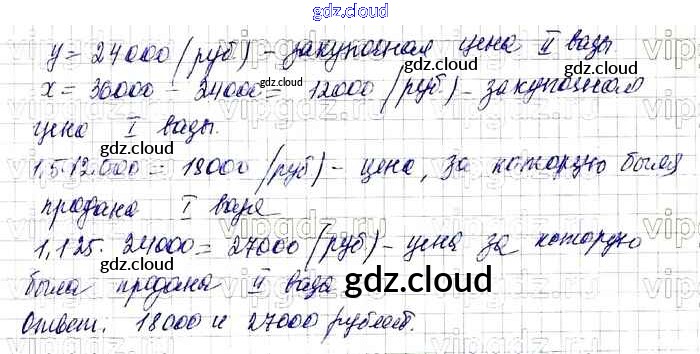 gdz.cloud
gdz.cloud
y = 24000 (руб) - закупочная цена II вазы
x = 36000 - 24000 = 12000 (руб) - закупочная
gdz.cloud
gdz.cloud
цена I вазы.
gdz.cloud
1,5·12000 = 18000 (руб) - цена, за которую была
gdz.cloud
продана I ваза
gdz.cloud
1,125·24000 = 27000 (руб) - цена за которую
была продана II ваза
gdz.cloud
gdz.cloud
Ответ: 18000 и 27000 рублей.